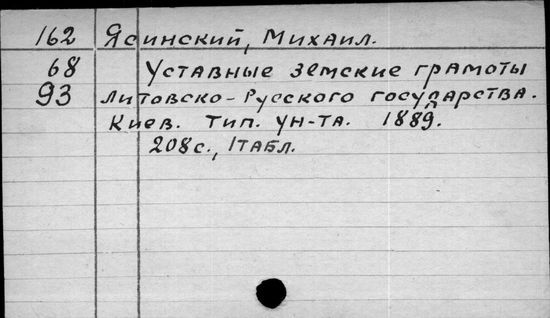 162 Ясинский, Михаил.
68 Уставные земские грамоты
93 Литовско-Русского государства.
Киев. Тип. ун-та. 1889.
208с., 1табл.